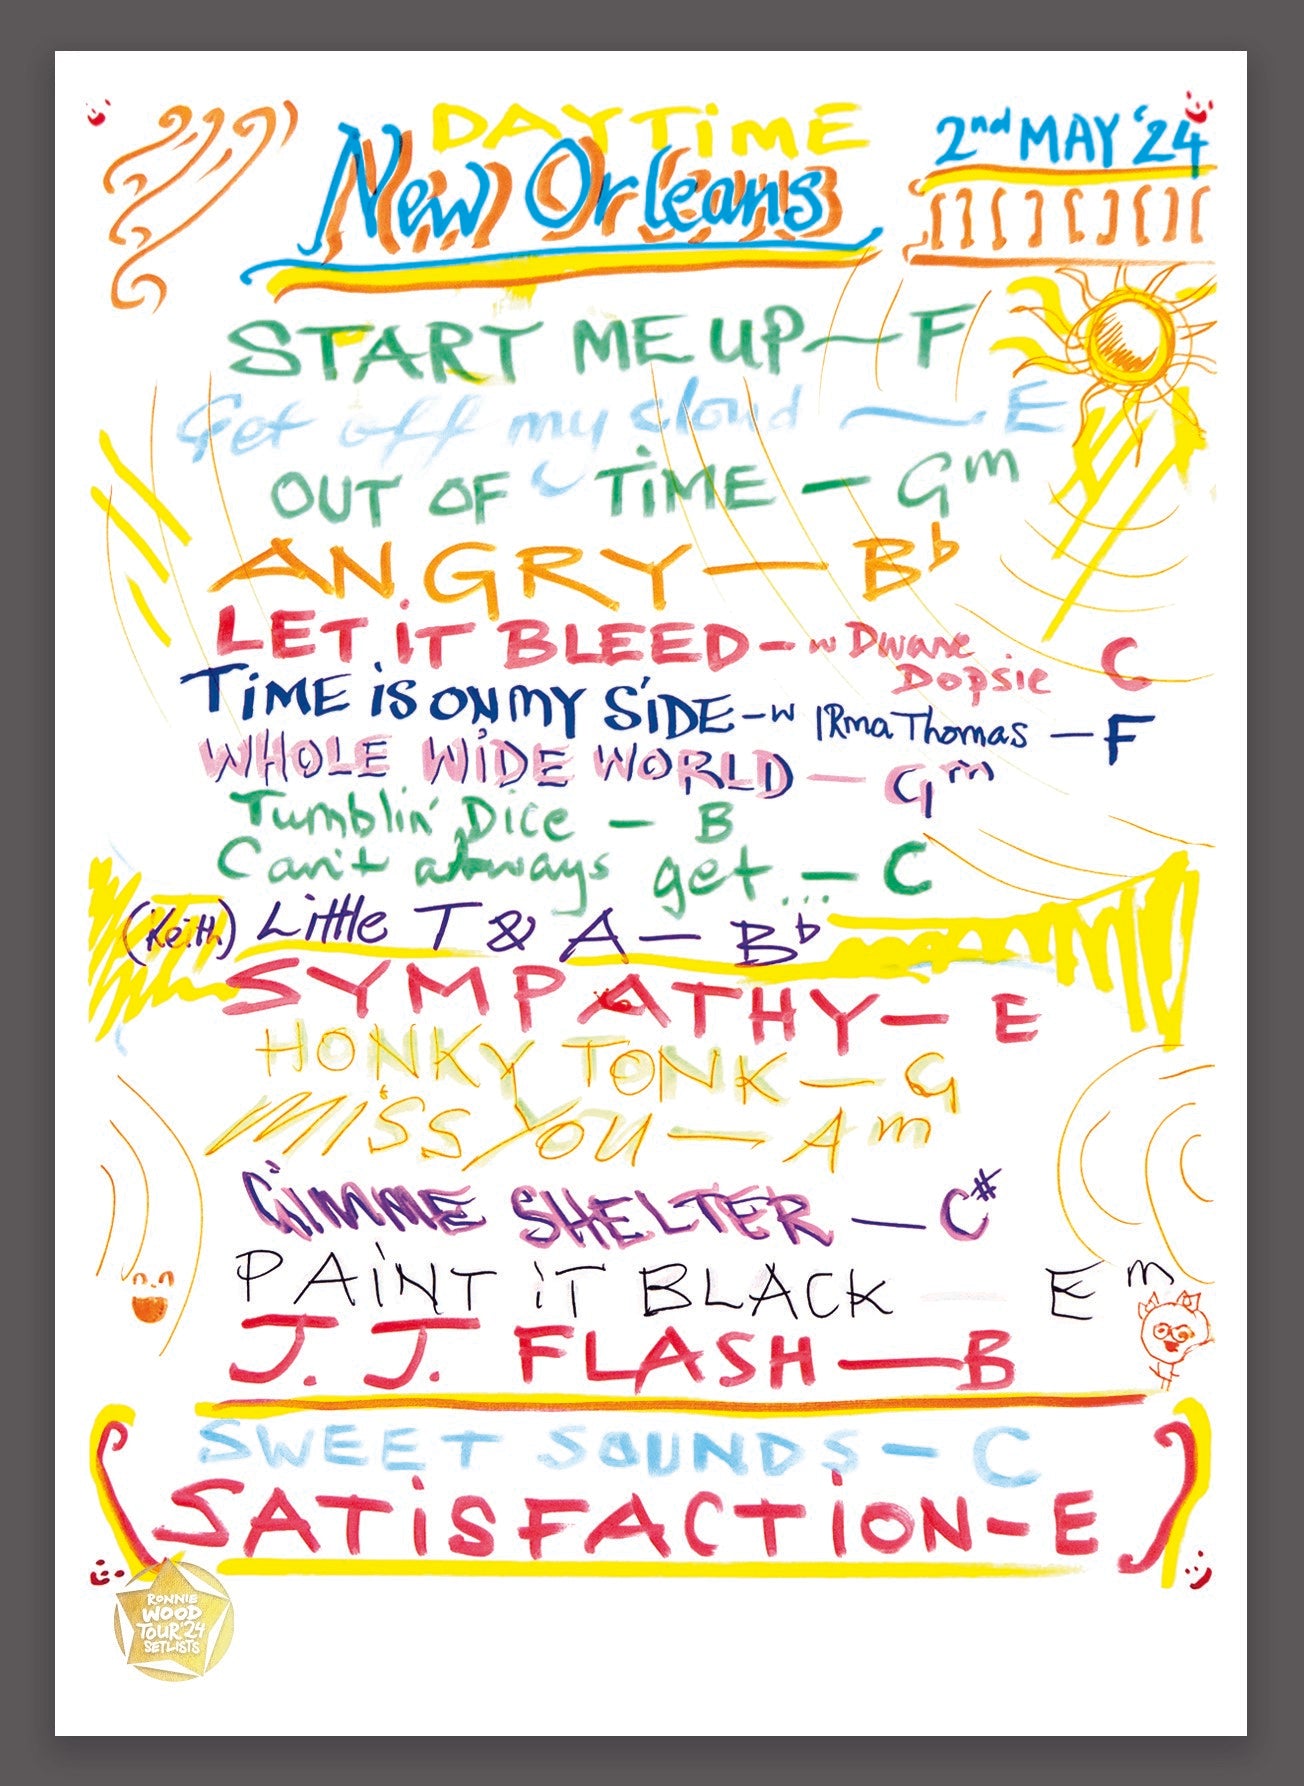 DAYTiME
New Orleans
2nd MAY '24
START ME UP — F
Get off my cloud — E
OUT OF TiME — Gm
ANGRY — Bb
LET iT BLEED - w Dwane Dopsie C
TiME iS ON MY SiDE - w IRma Thomas — F
WHOLE WiDE WORLD — Gm
Tumblin' Dice — B
Can't always get ... — C
(Keith) Little T & A — Bb
SYMPATHY — E
HONKY TONK — G
MiSS YOU — Am
GiMME SHELTER — C#
PAiNT iT BLACK — Em
J. J. FLASH — B
SWEET SOUNDS — C
SATiSFACTiON - E
RONNIE
WOOD
TOUR '24
SETLISTS